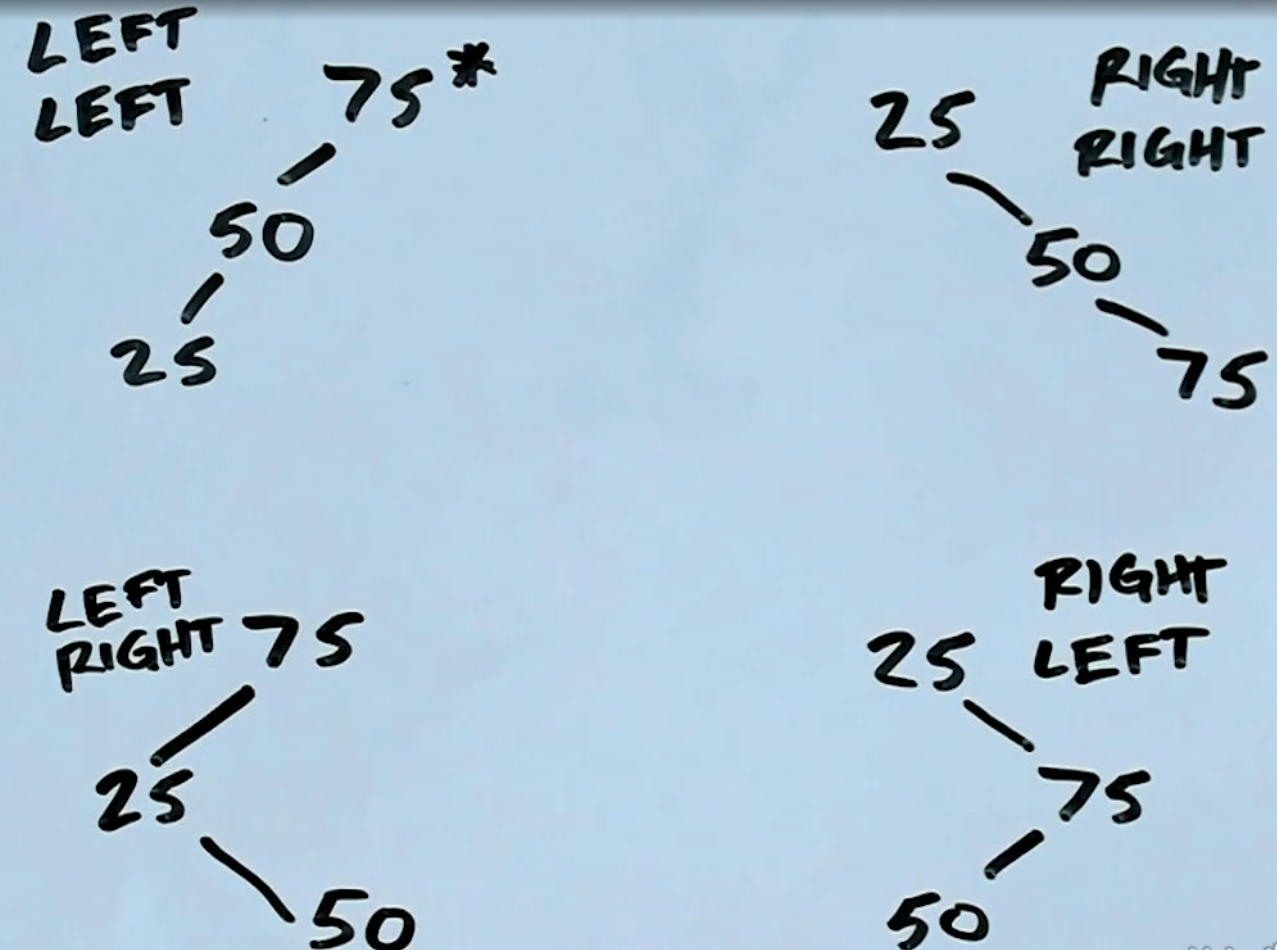 LEFT
LEFT
75*
50
25
RIGHT
RIGHT
25
50
75
LEFT
RIGHT
75
25
50
RIGHT
LEFT
25
75
50